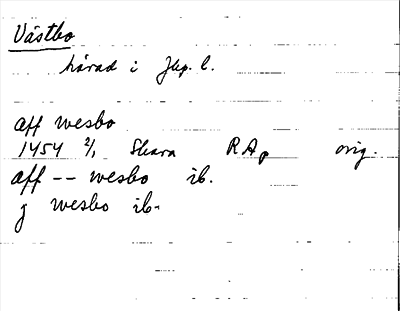 Västbo
härad i Jkp. l.
aff wesbo
1454 2/1 Skara RAp orig.
aff -- wesbo ib.
j wesbo ib-